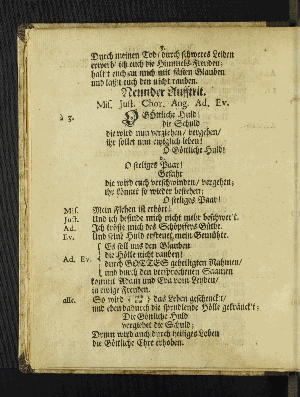 Durch meinen Tod / durch schweres Leiden
erwerb' ich euch die Himmels-Freuden:
halt't euch an mich mit festen Glauben
und laßt euch den nicht rauben.
Neundter Aufftrit.
Mis. Just. Chor. Ang. Ad. Ev.
à 5.
O GÖttliche Huld!
die Schuld
die wird nun verziehen / vergehen /
ihr sollet nun ewiglich leben!
O Göttliche Huld!
O seeliges Paar!
Gefahr
die wird euch verschwinden / vergehen;
ihr könnet so wieder bestehen:
O seeliges Paar!
Mis. Mein Flehen ist erhört;
Just. Und ich befinde mich nicht mehr beschwert.
Ad. Ich tröste mich des Schöpffers Güthe.
Ev. Und seine Huld erfreuet mein Gemüthe.
Ad. Ev. Es soll uns den Glauben
die Hölle nicht rauben!
durch GOTTES geheiligten Nahmen /
und durch den versprochenen Saamen
kommt Adam und Eva vom Leyden /
zu ewige Freuden.
alle. So wird das Leben geschenckt /
und eben dadurch die Hölle gekränckt;
Die Göttliche Huld
vergiebet die Schuld;
Drumm wird auch durch heiliges Loben
die Göttliche Ehre erhoben.